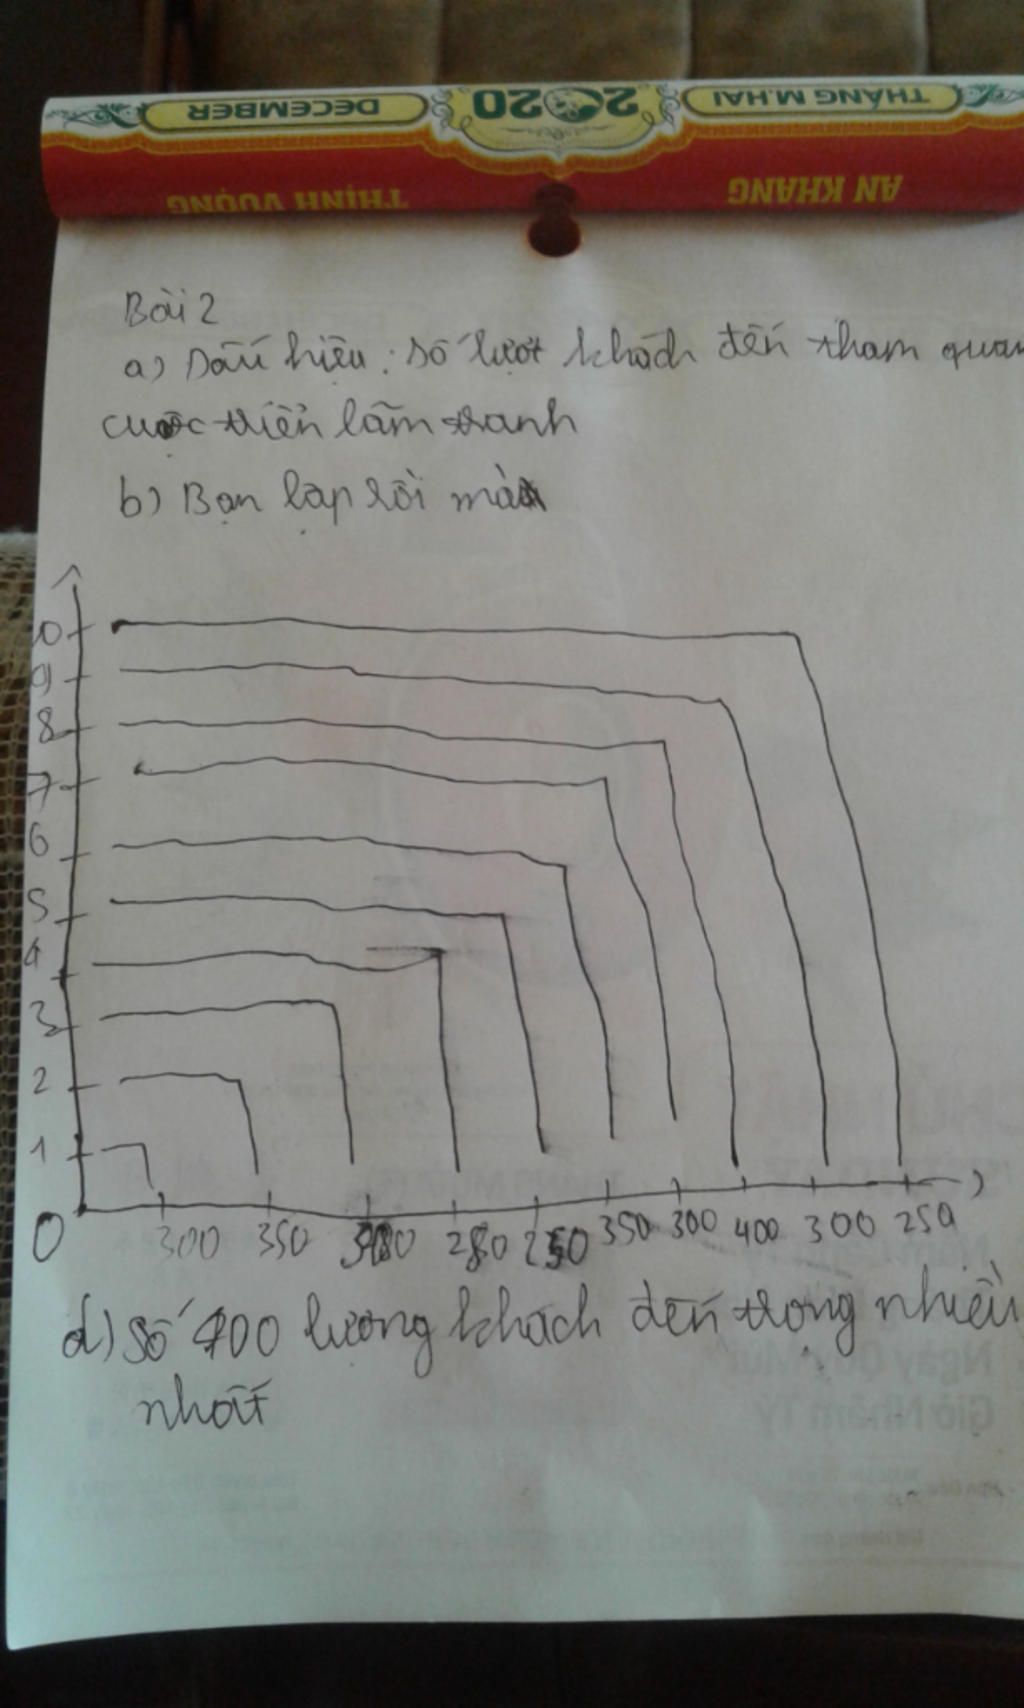 THÁNG M.HAI 2020 DECEMBER
AN KHANG THỊNH VƯỢNG
Bài 2
a) Dấu hiệu: số lượt khách đến tham quan
cuộc triển lãm tranh
b) Bạn lập rồi mà
10
9
8
7
6
5
4
3
2
1
0 300 350 280 250 350 300 400 300 250
d) Số 400 lượng khách đến trong nhiều
nhất